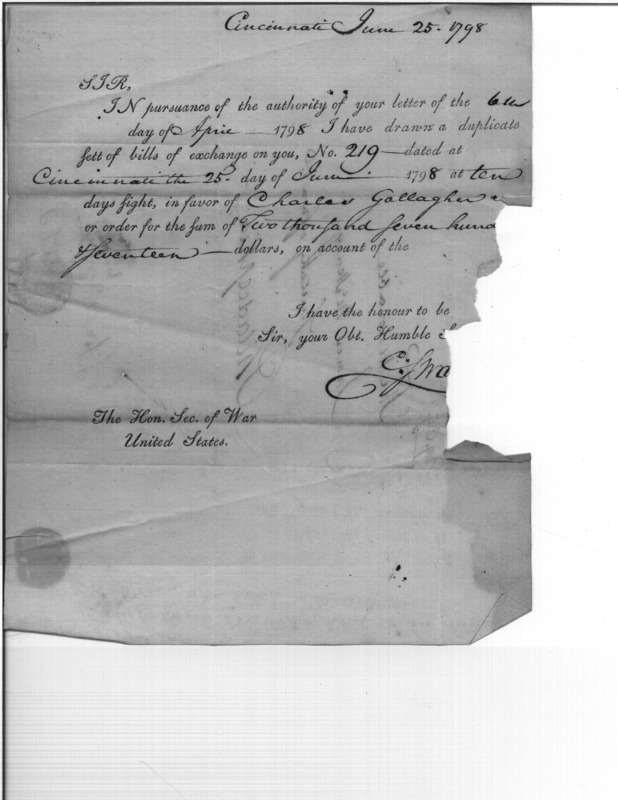 Cincinnati June 25. 1798
SIR,
IN pursuance of the authority of your letter of the 6th
day of April — 1798 I have drawn a duplicate
sett of bills of exchange on you, No. 219 — dated at
Cincinnati the 25. day of June — 1798 at ten
days sight, in favor of Charles Gallagher
or order for the sum of Two thousand seven hund
& seventeen — dollars, on account of the
I have the honour to be
Sir, your Obt. Humble S
C: Swa
The Hon. Sec. of War
United States.